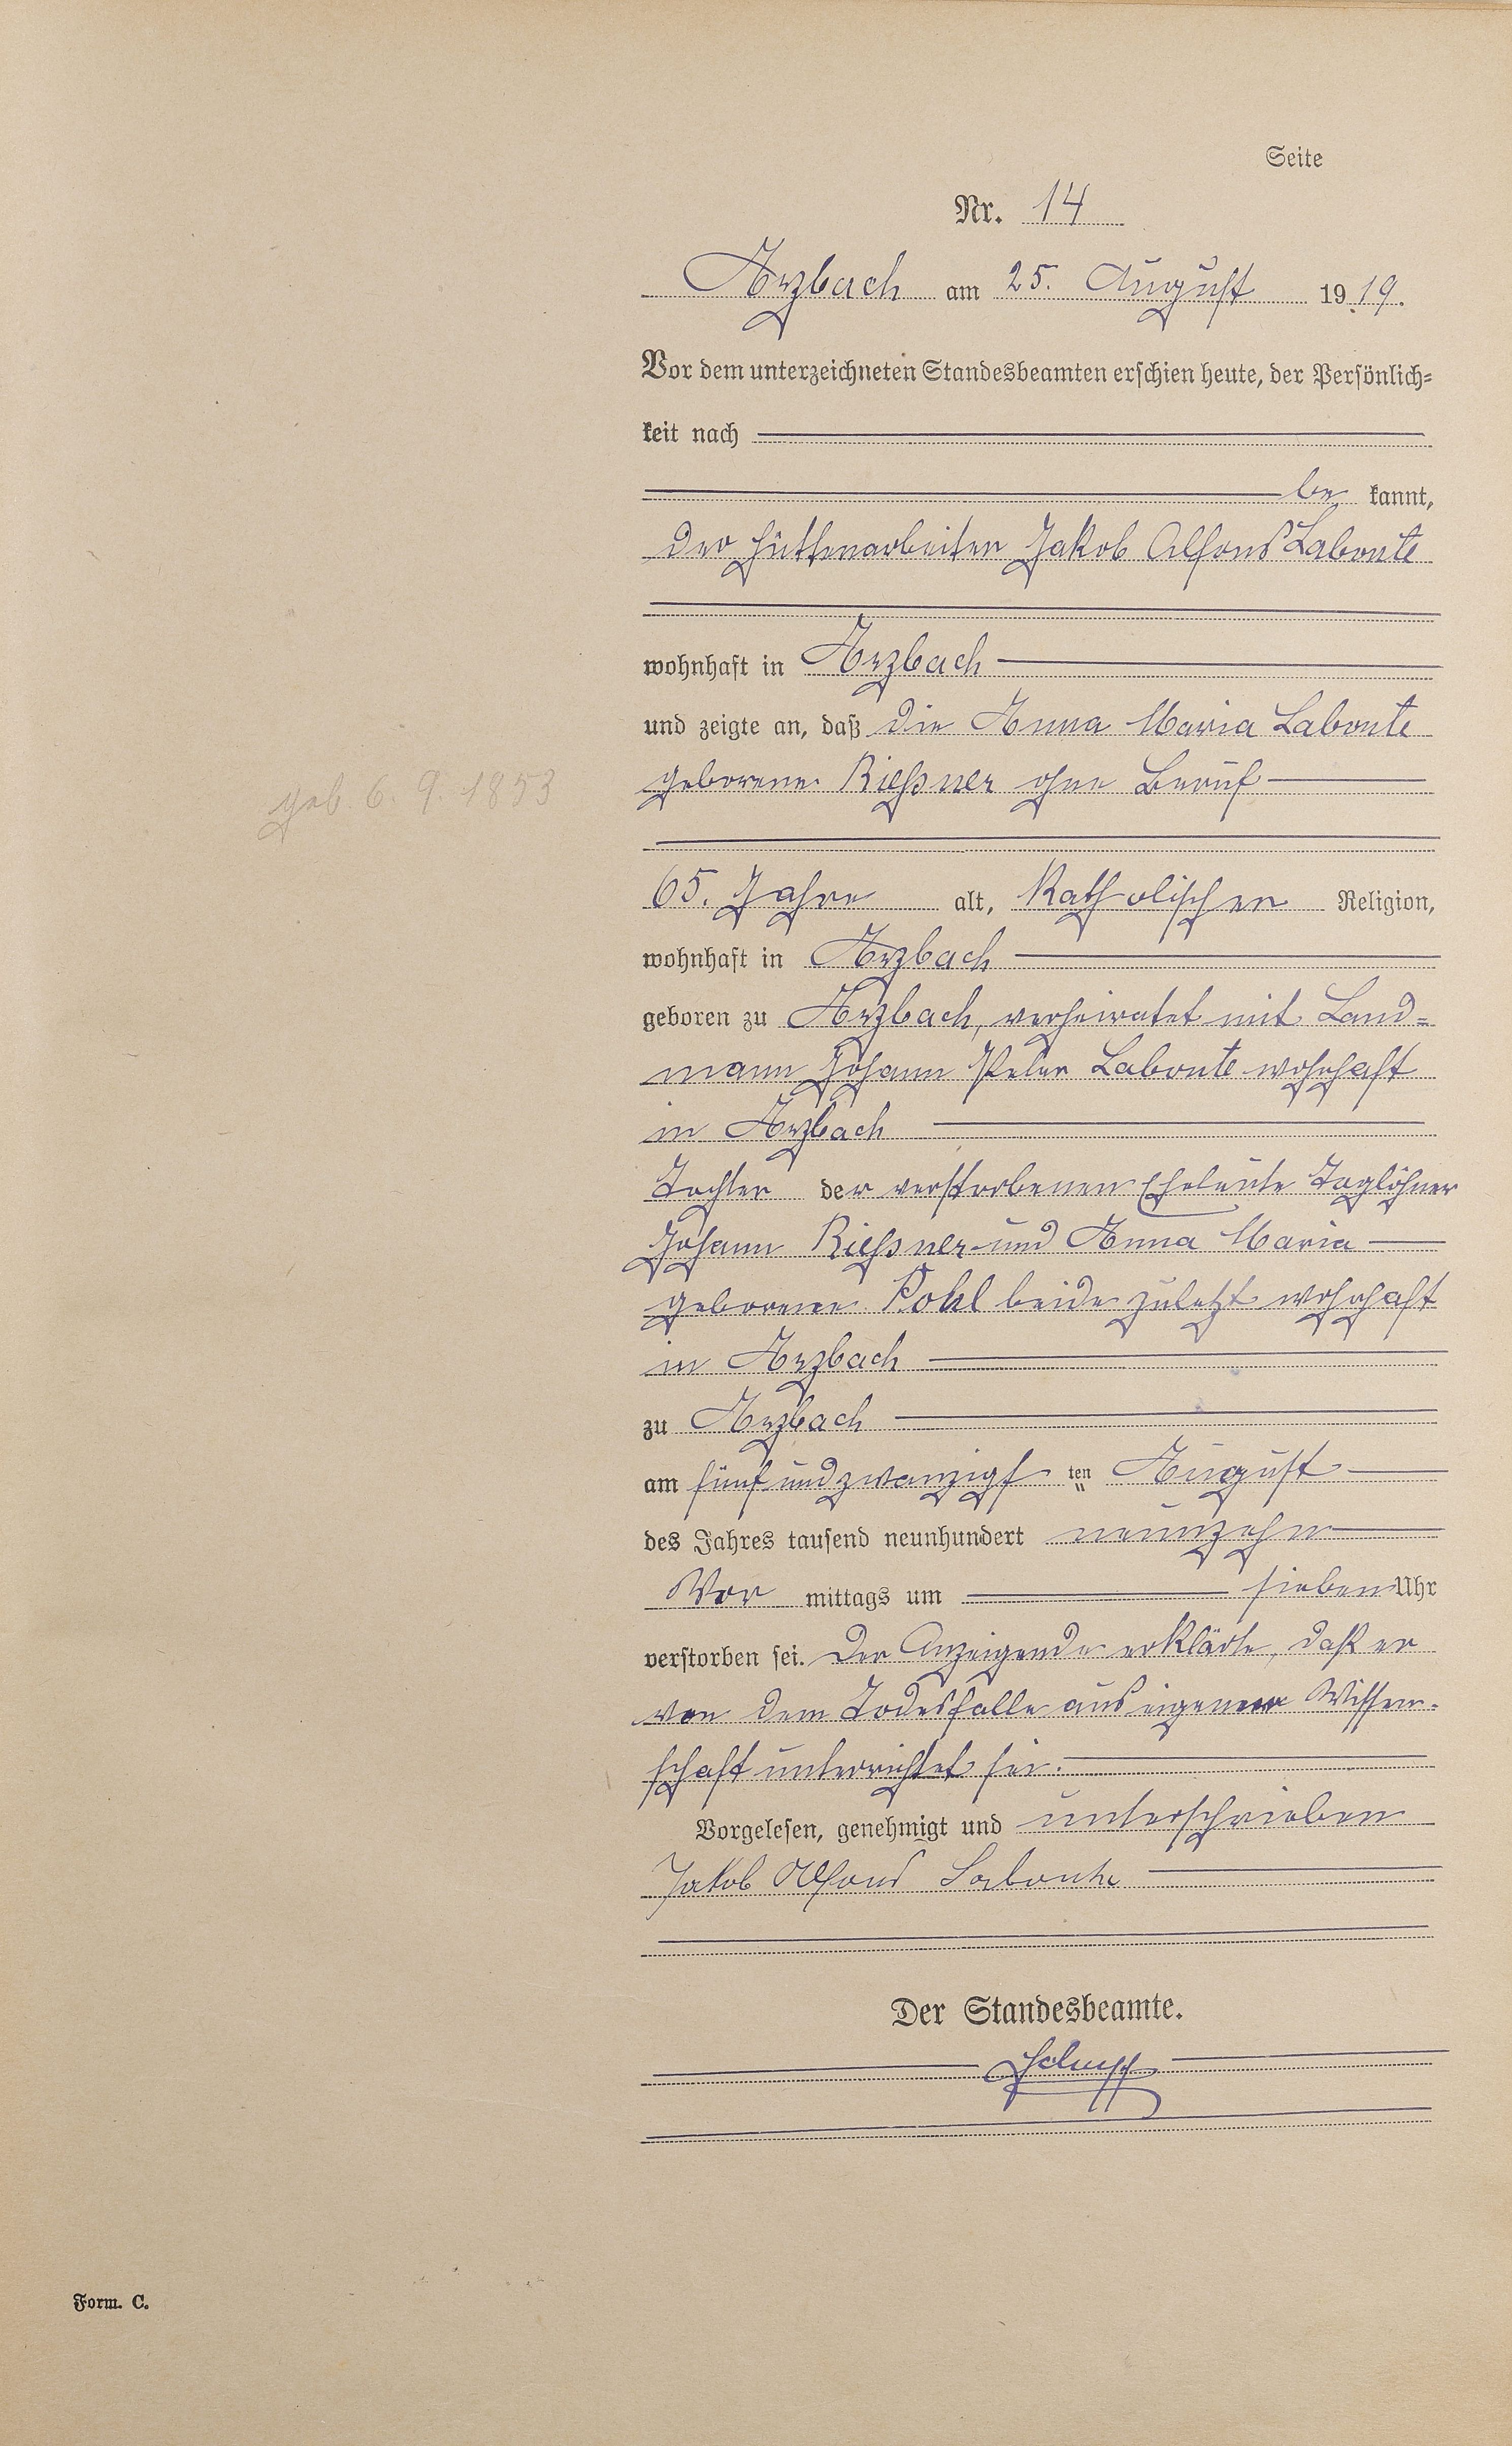 Seite
Nr. 14
Arzbach am 25. August 1919.
Vor dem unterzeichneten Standesbeamten erschien heute, der Persönlich=
keit nach
be kannt,
der Hüttenarbeiter Jakob Alfons Labonte
wohnhaft in Arzbach
und zeigte an, daß die Anna Maria Labonte
geborene Rießner ohne Beruf
geb. 6. 9 1853
65. Jahre alt, katholischer Religion,
wohnhaft in Arzbach
geboren zu Arzbach, verheiratet mit Land=
mann Johann Peter Labonte wohnhaft
in Arzbach
Tochter der verstorbenen Eheleute Taglöhner
Johann Rießner und Anna Maria
geborene Pohl beide zuletzt wohnhaft
in Arzbach
zu Arzbach
am fünf und zwanzigsten August
des Jahres tausend neunhundert neunzehn
Vor mittags um sieben Uhr
verstorben sei. Der Anzeigende erklärte, daß er
von dem Todesfalle aus eigener Wissen-
schaft unterrichtet sei.
Vorgelesen, genehmigt und unterschrieben
Jakob Alfons Labonte
Der Standesbeamte.
Form. C.